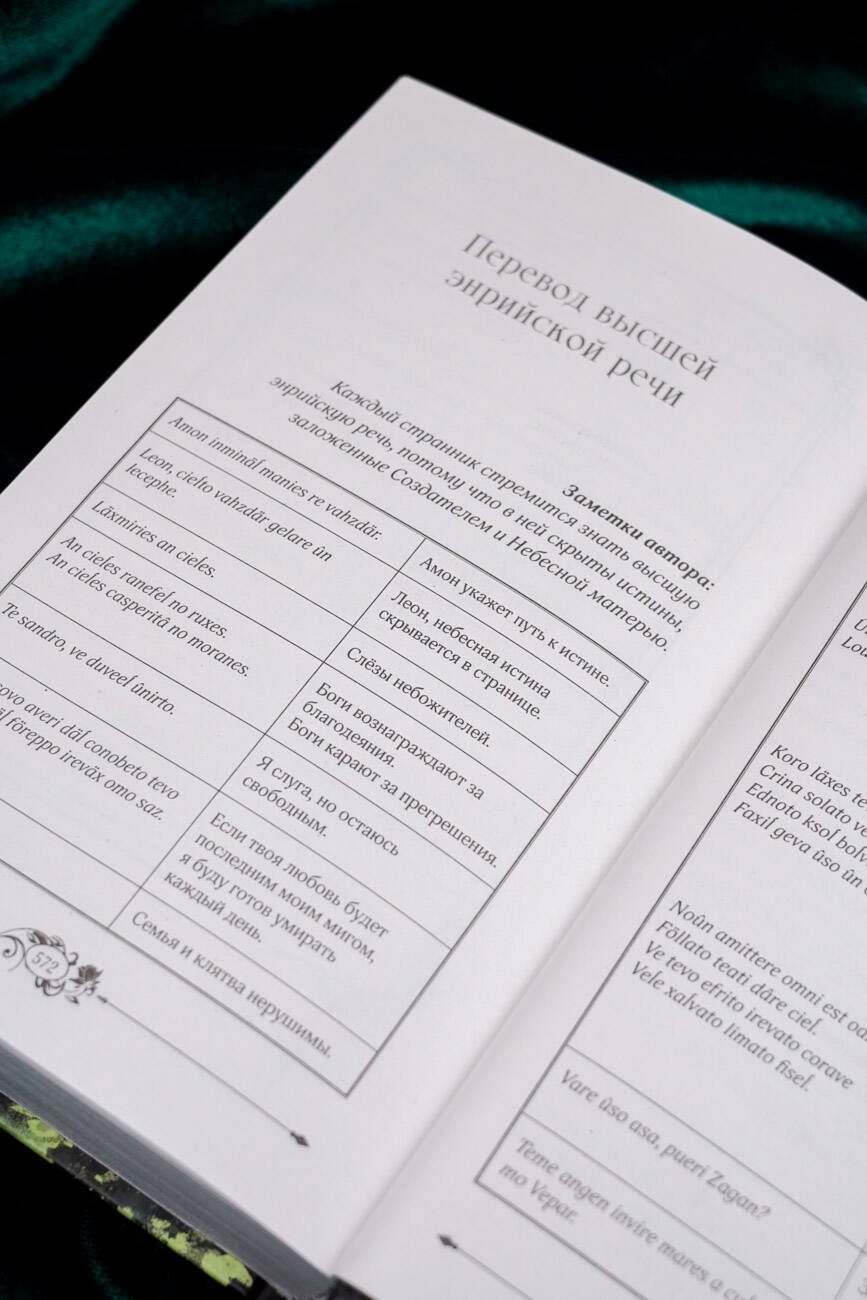 Перевод высшей
энрийской речи
Заметки автора:
Каждый странник стремится знать высшую
энрийскую речь, потому что в ней скрыты истины,
заложенные Создателем и Небесной матерью.
Amon inminäl manies re vahzdär.
Амон укажет путь к истине.
Leon, cielto vahzdär gelare ûn
lecephe.
Леон, небесная истина
скрывается в странице.
Läxmiries an cieles.
Слёзы небожителей.
An cieles ranefel no ruxes.
An cieles casperitâ no moranes.
Боги вознаграждают за
благодеяния.
Боги карают за прегрешения.
Te sandro, ve duveel ûnirto.
Я слуга, но остаюсь
свободным.
averi däl conobeto tevo
föreppo ireväx omo saz.
Если твоя любовь будет
последним моим мигом,
я буду готов умирать
каждый день.
Семья и клятва нерушимы.
572
Koro läxes
Crina solato
Ednoto ksol
Faxil geva ûso ûn
Noûn amittere omni est
Föllato teati dâre ciel.
Ve tevo efrito irevato corave
Vele xalvato limato fisel.
Vare ûso asa, pueri Zagan?
Teme angen invire mares a
mo Vepar.